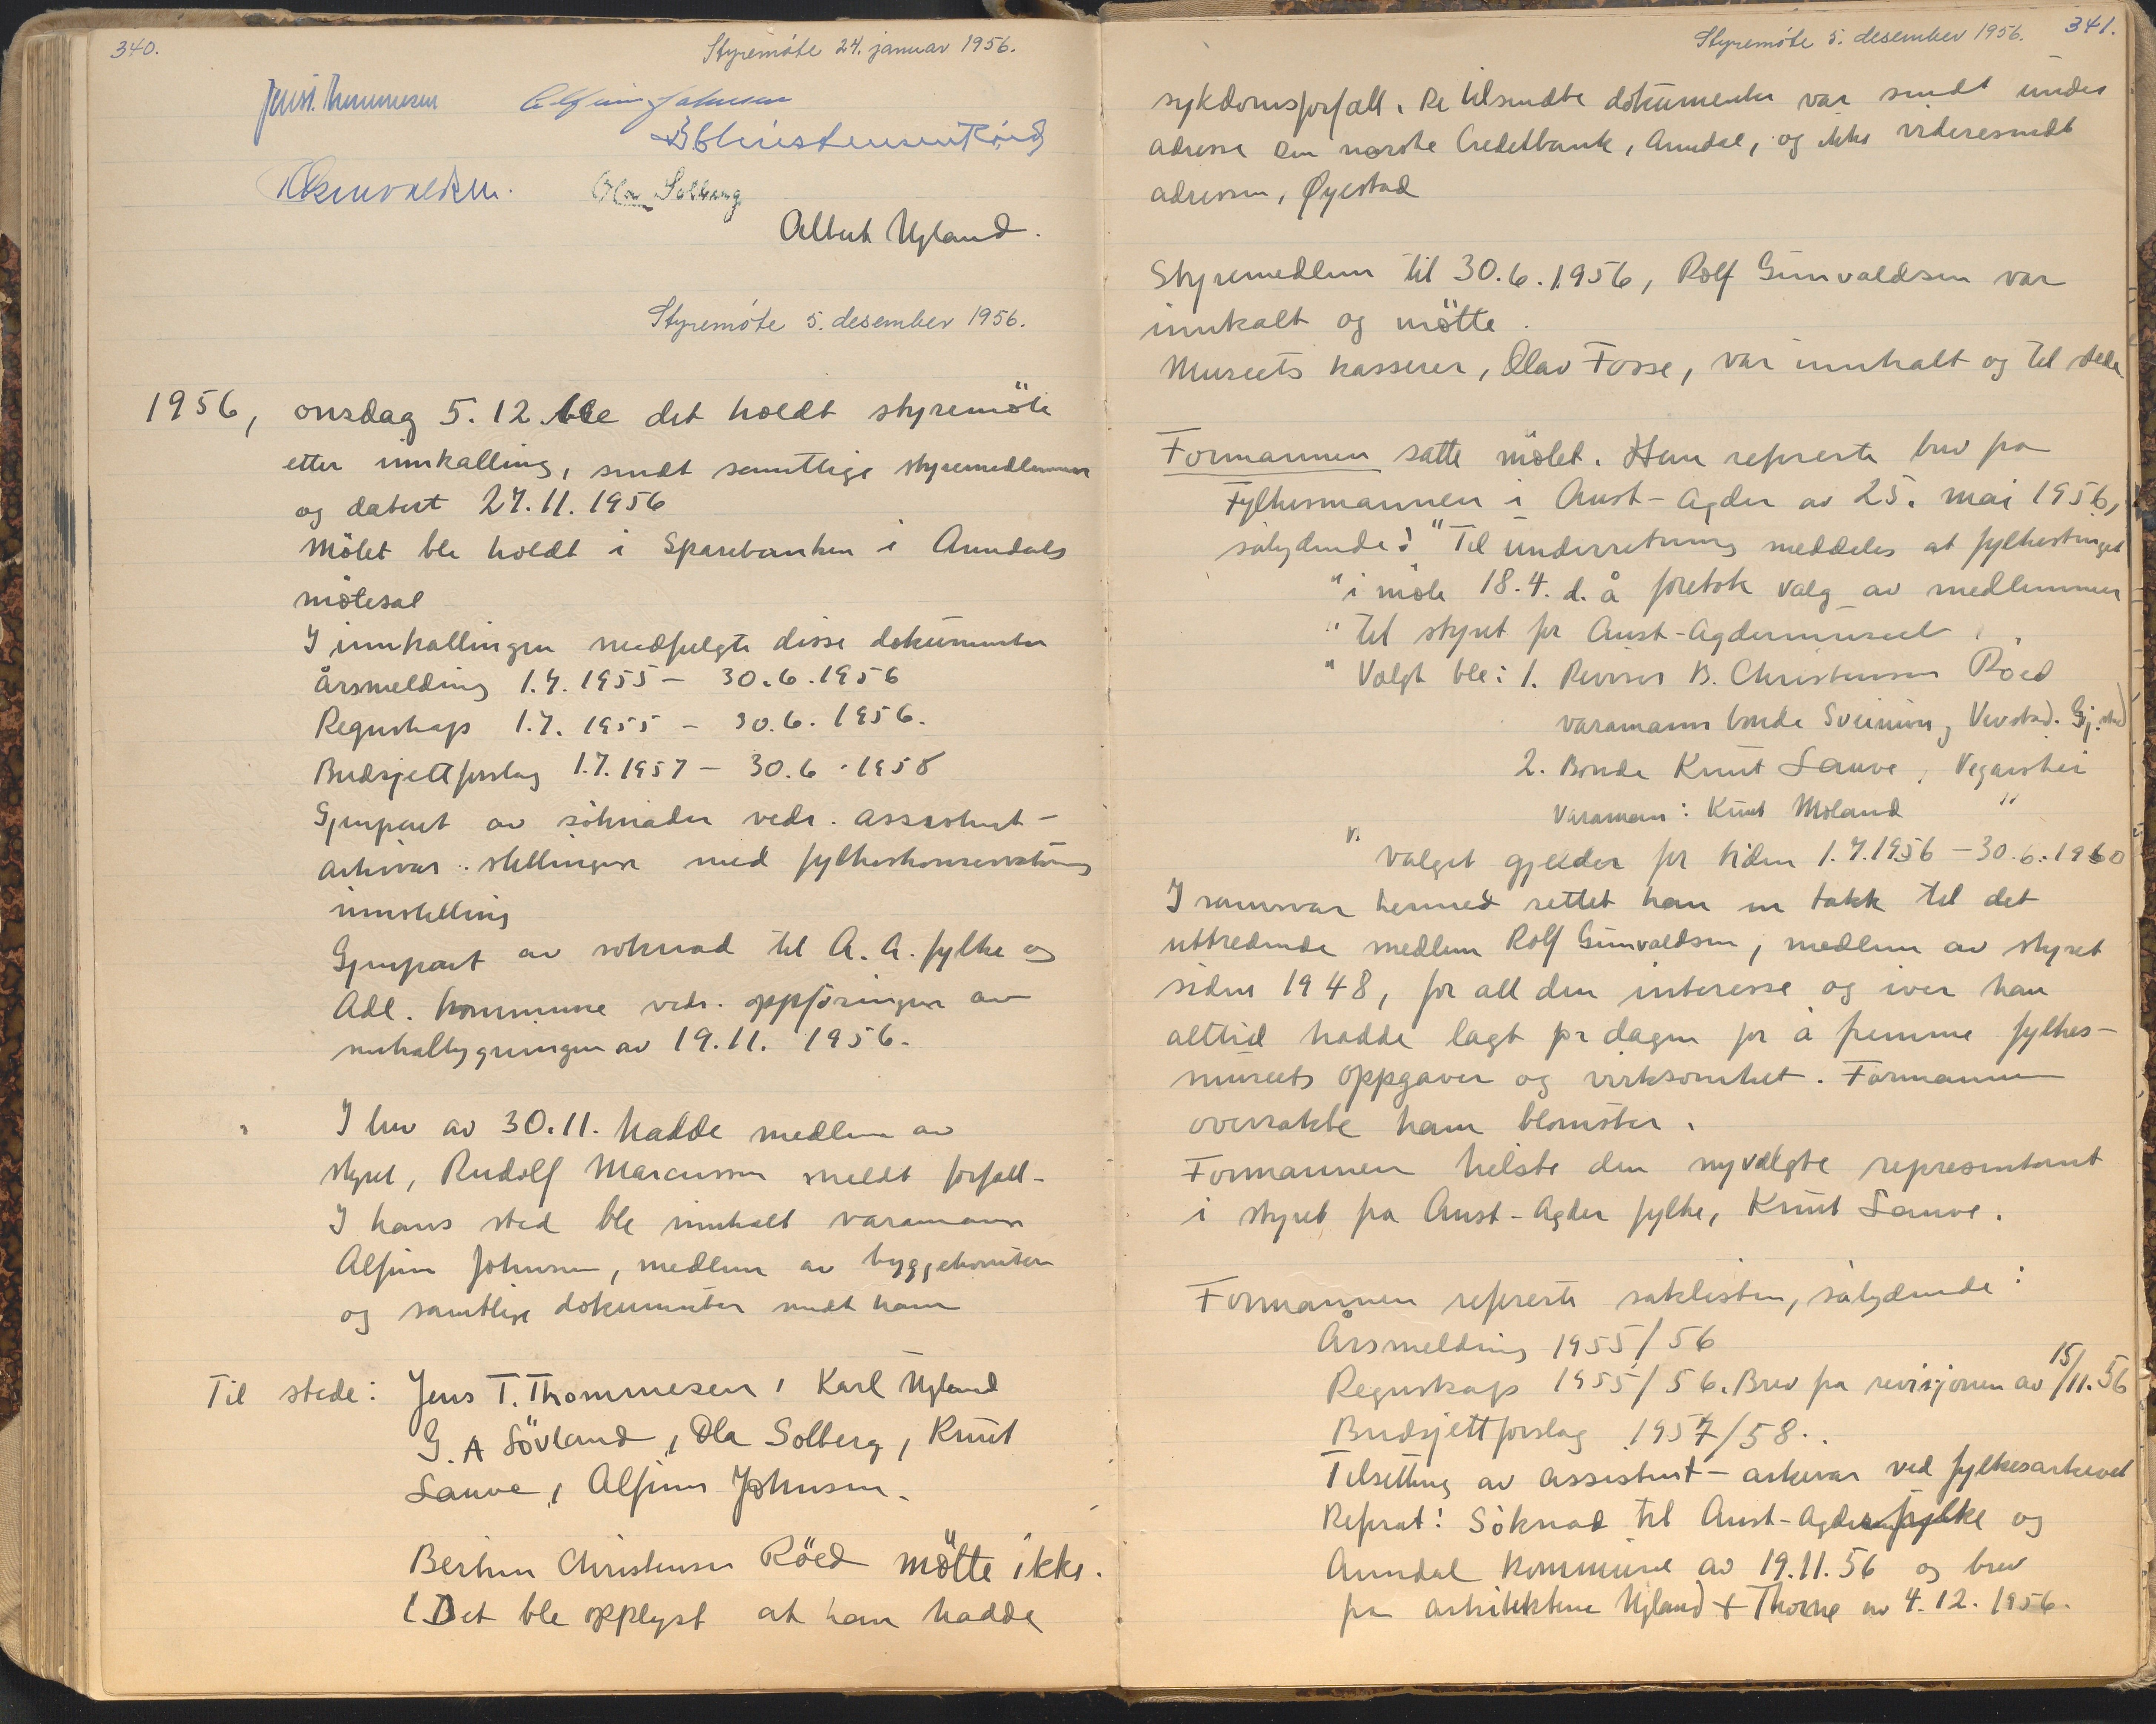 340.
Styremöte 24. januar 1956.
Jens T. Thommesen Alfinn Johnsen
B Christensen Röed
Olav Solberg
Albert Ugland.
Styremöte 5. desember 1956.
1956, onsdag 5.12. ble det holdt styremöte
etter innkalling, sendt samtlige styremedlemmer
og datert 27.11.1956
Mötet ble holdt i Sparebanken i Arendals
mötesal
I innkallingen medfulgte disse dokumenter
Årsmelding 1.7.1955 - 30.6.1956
Regnskap 1.7.1955 - 30.6.1956.
Budsjettforslag 1.7.1957 - 30.6.1958
Gjenpart av söknader vedr. assistent-
arkivar stillingen med fylkeskonservatorens
innstilling
Gjenpart av söknad til A.A. fylke og
Adl. kommune vedr. oppföringen av
museumsbygningen av 19.11.1956.
I brev av 30.11. hadde medlem av
styret, Rudolf Marcussen meldt forfall.
I hans sted ble innkalt varamann
Alfinn Johnsen, medlem av byggekomiteen
og samtlige dokumenter sendt ham
Til stede: Jens T. Thommesen, Karl Ugland
G. A Sövland, Ola Solberg, Knut
Lauve, Alfinn Johnsen.
Bertin Christensen Röed mötte ikke.
(Det ble opplyst at han hadde
Styremöte 5. desember 1956. 341.
sykdomsforfall. De tilsendte dokumenter var sendt under
adresse Den norske Creditbank, Arendal, og ikke videresendt
adressen, Øyestad
Styremedlem til 30.6.1956, Rolf Gunvaldsen var
innkalt og mötte.
Museets kasserer, Olav Fosse, var innkalt og til stede
Formannen satte mötet. Han refererte brev fra
Fylkesmannen i Aust-Agder av 25. mai 1956,
sålydende: "Til underretning meddeles at fylkestinget
"i möte 18.4. d. å foretok valg av medlemmer
"til styret for Aust-Agdermuseet.
"Valgt ble: 1. Revisor B. Christensen Röed
varamann bonde Sveinung Vevstad. Gj.stad
2. Bonde Knut Lauve, Vegårshei
Varamann: Knut Moland "
" Valget gjelder for tiden 1.7.1956 - 30.6.1960
I samsvar hermed rettet han en takk til det
uttredende medlem Rolf Gunvaldsen, medlem av styret
siden 1948, for all den interesse og iver han
alltid hadde lagt for dagen for å fremme fylkes-
museets oppgaver og virksomhet. Formannen
overrakte ham blomster.
Formannen hilste den nyvalgte representant
i styret fra Aust-Agder fylke, Knut Lauve.
Formannen refererte saklisten, sålydende:
Årsmelding 1955/56
Regnskap 1955/56. Brev fra revisjonen av 15/11.56
Budsjettforslag 1957/58.
Tilsetting av assistent-arkivar ved fylkesarkivet
Referat: Söknad til Aust-Agder fylke og
Arendal kommune av 19.11.56 og brev
fra arkitektene Ugland + Thorne av 4.12.1956.